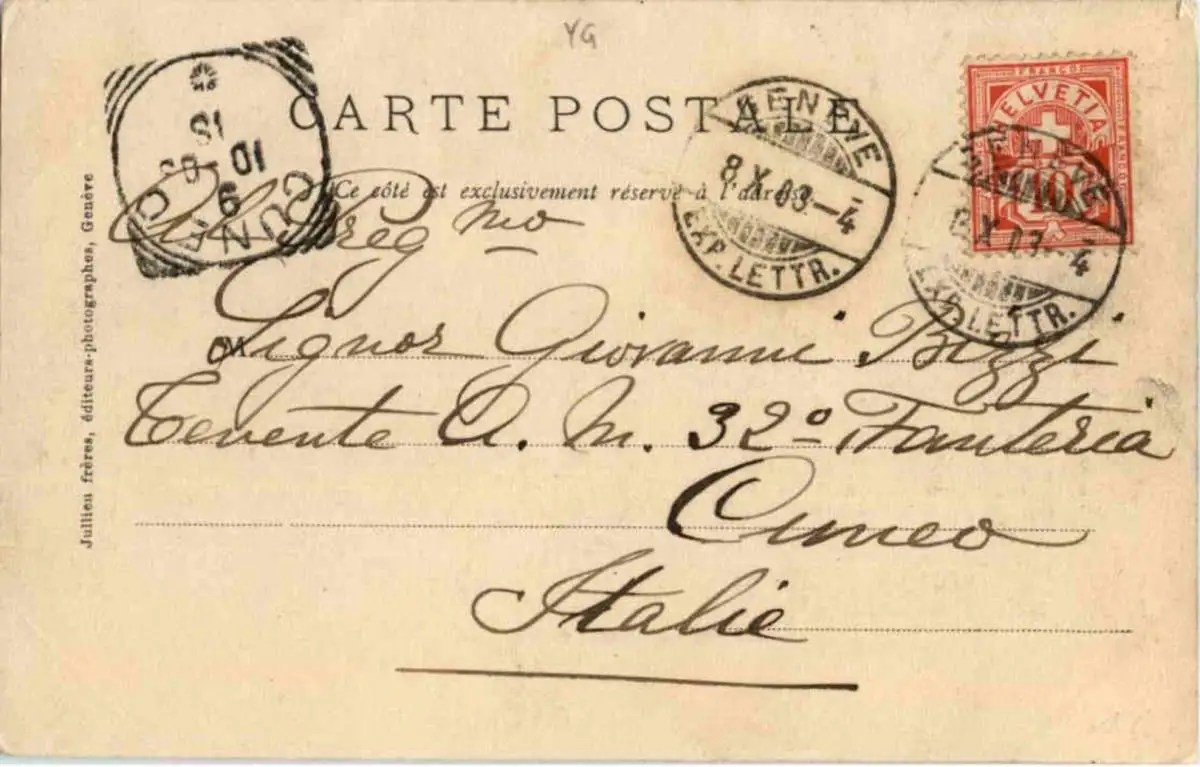 YG
CARTE POSTALE
Ce côté est exclusivement réservé à l'adresse
FRANCO
HELVETIA
10
GENÈVE
8.X.03—4
EXP. LETTR.
GENÈVE
8.X.03—4
EXP. LETTR.
CUNEO
9
10-03
18
All' Preg mo
Signor Giovanni Bizzi
Tenente A. M. 32º Fanteria
Cuneo
Italie
Jullien frères, éditeurs-photographes, Genève